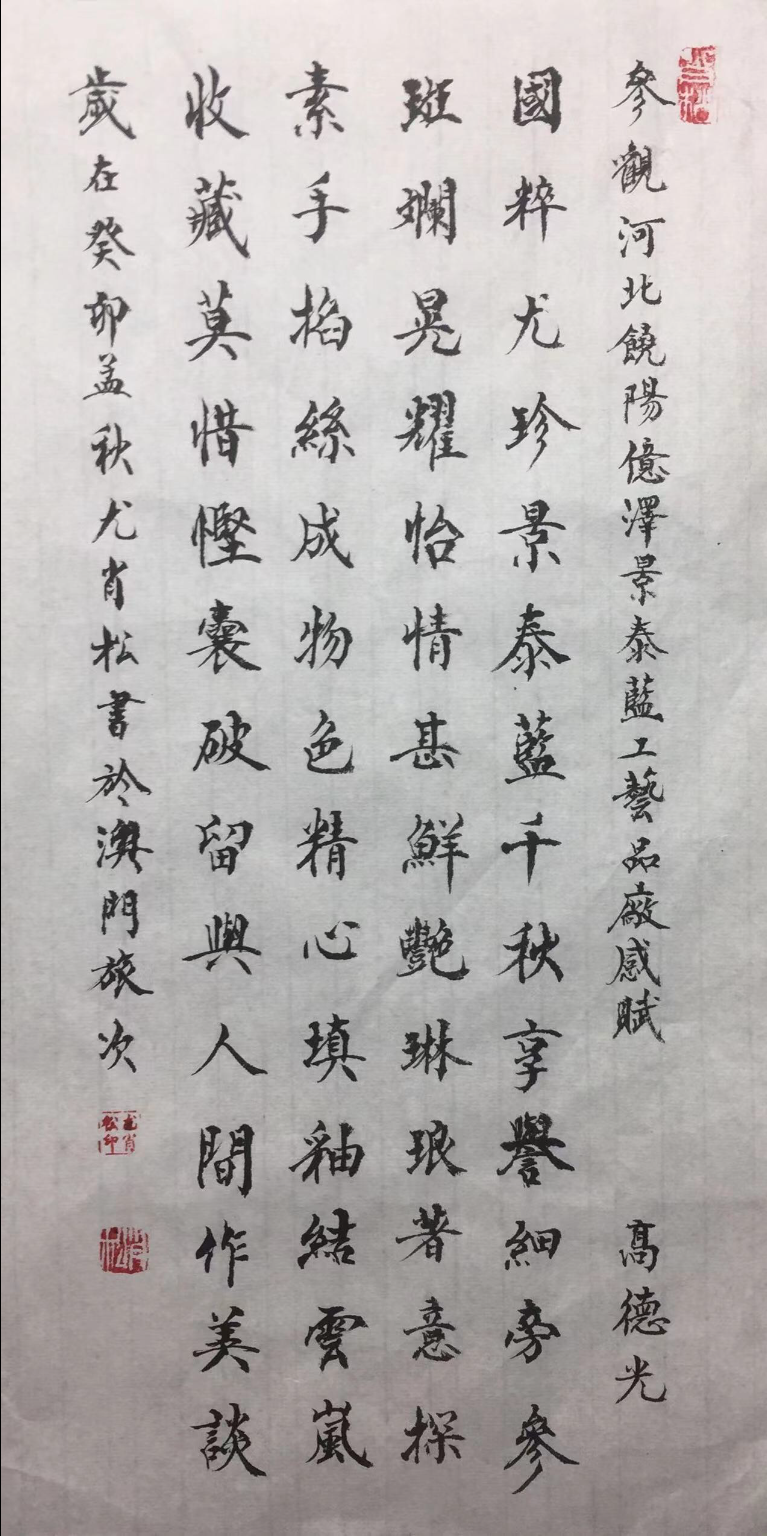 參觀河北饒陽億澤景泰藍工藝品廠感賦 高德光
國粹尤珍景泰藍千秋享譽細旁參
斑斕晃耀怡情甚鮮艷琳琅著意探
素手掐絲成物色精心填釉結雲嵐
收藏莫惜慳囊破留與人間作美談
歲在癸卯孟秋尤肖松書於澳門旅次
尤肖松印